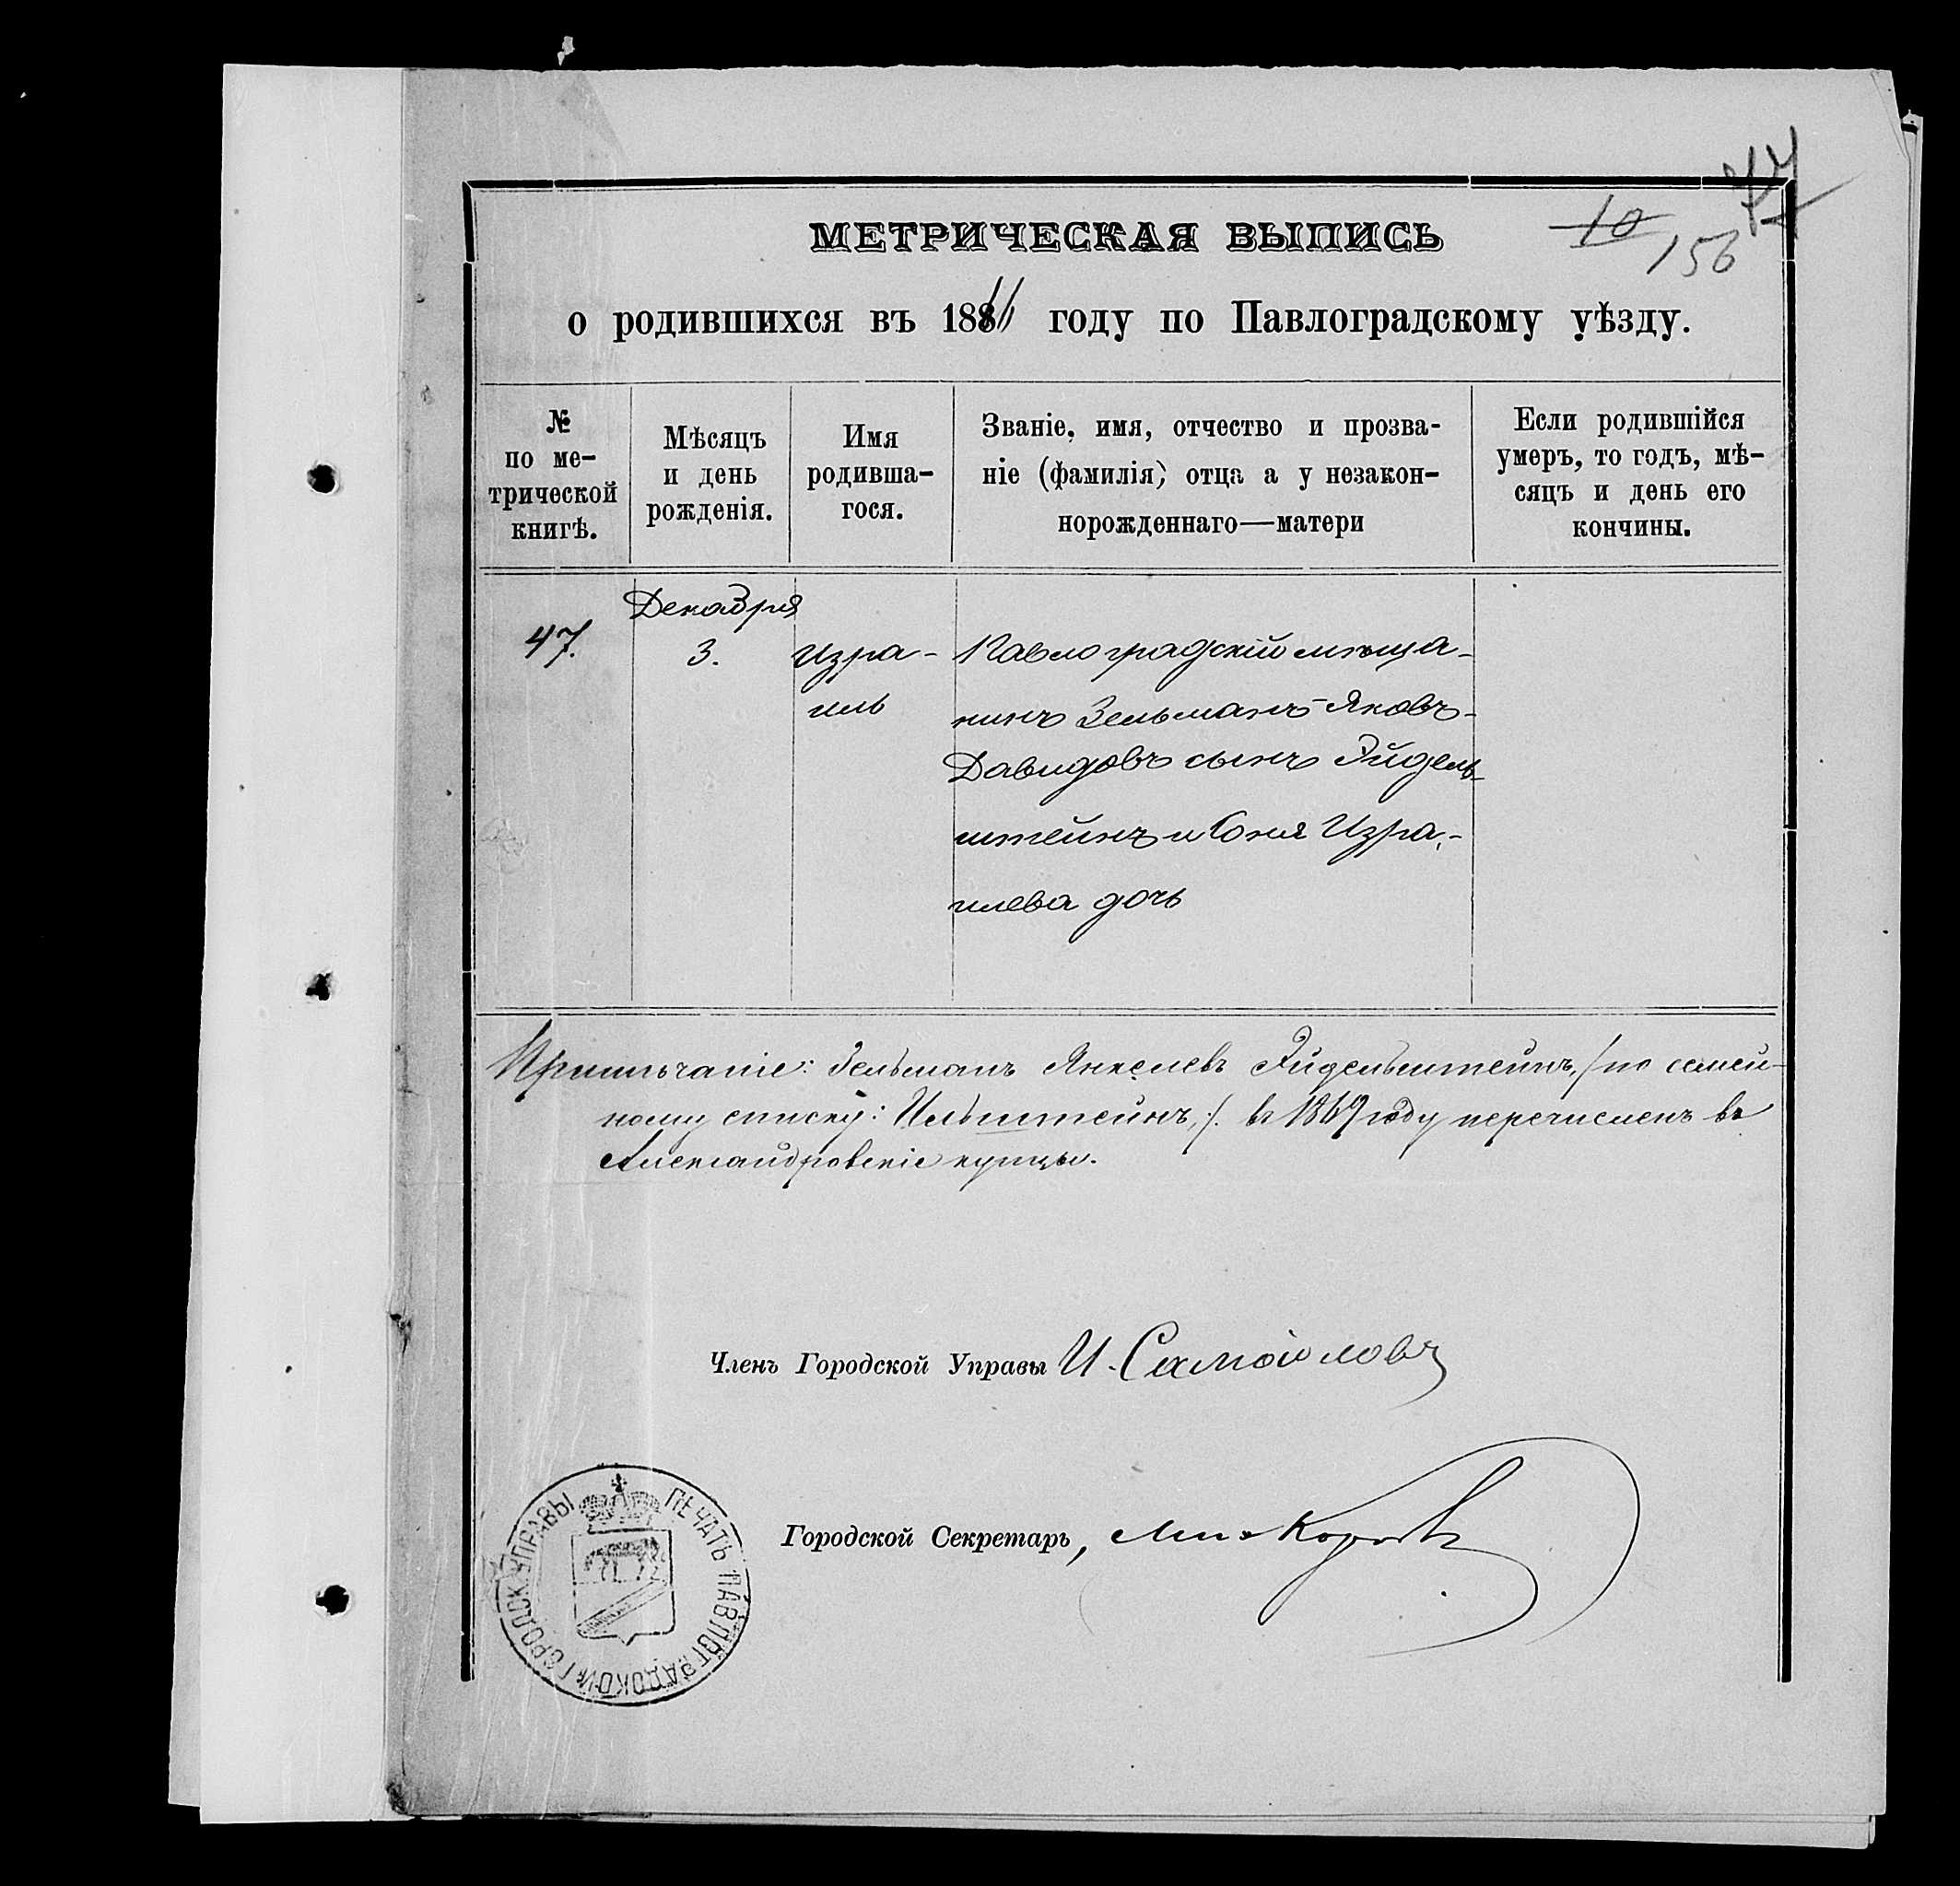 77
10
156
МЕТРИЧЕСКАЯ ВЫПИСЬ
о родившихся въ 188 году по Павлоградскому уѣзду.
№
по ме-
трической
книгѣ.
Мѣсяцъ
и день
рожденія.
Имя
родивша-
гося.
Званіе, имя, отчество и прозва-
ніе (фамилія) отца а у незакон-
норожденнаго—матери
Если родившійся
умеръ, то годъ, мѣ-
сяцъ и день его
кончины.
47.
Декабря
3.
Изра-
иль
Павлоградскій мѣща-
нинъ Зельманъ-Яковъ-
Давидовъ сынъ Эйдель-
штейнъ и Соня Изра-
илева дочь
Примѣчаніе: Зельманъ Янкелевъ Эйдельштейнъ, /по семей-
ному списку: Ильштейнъ,/. въ 1869 году перечисленъ въ
Александровскіе купцы.
Членъ Городской Управы И. Самойловъ
Городской Секретарь,
ПЕЧАТЬ ПАВЛОГРАДСКОЙ ГОРОДСК. УПРАВЫ